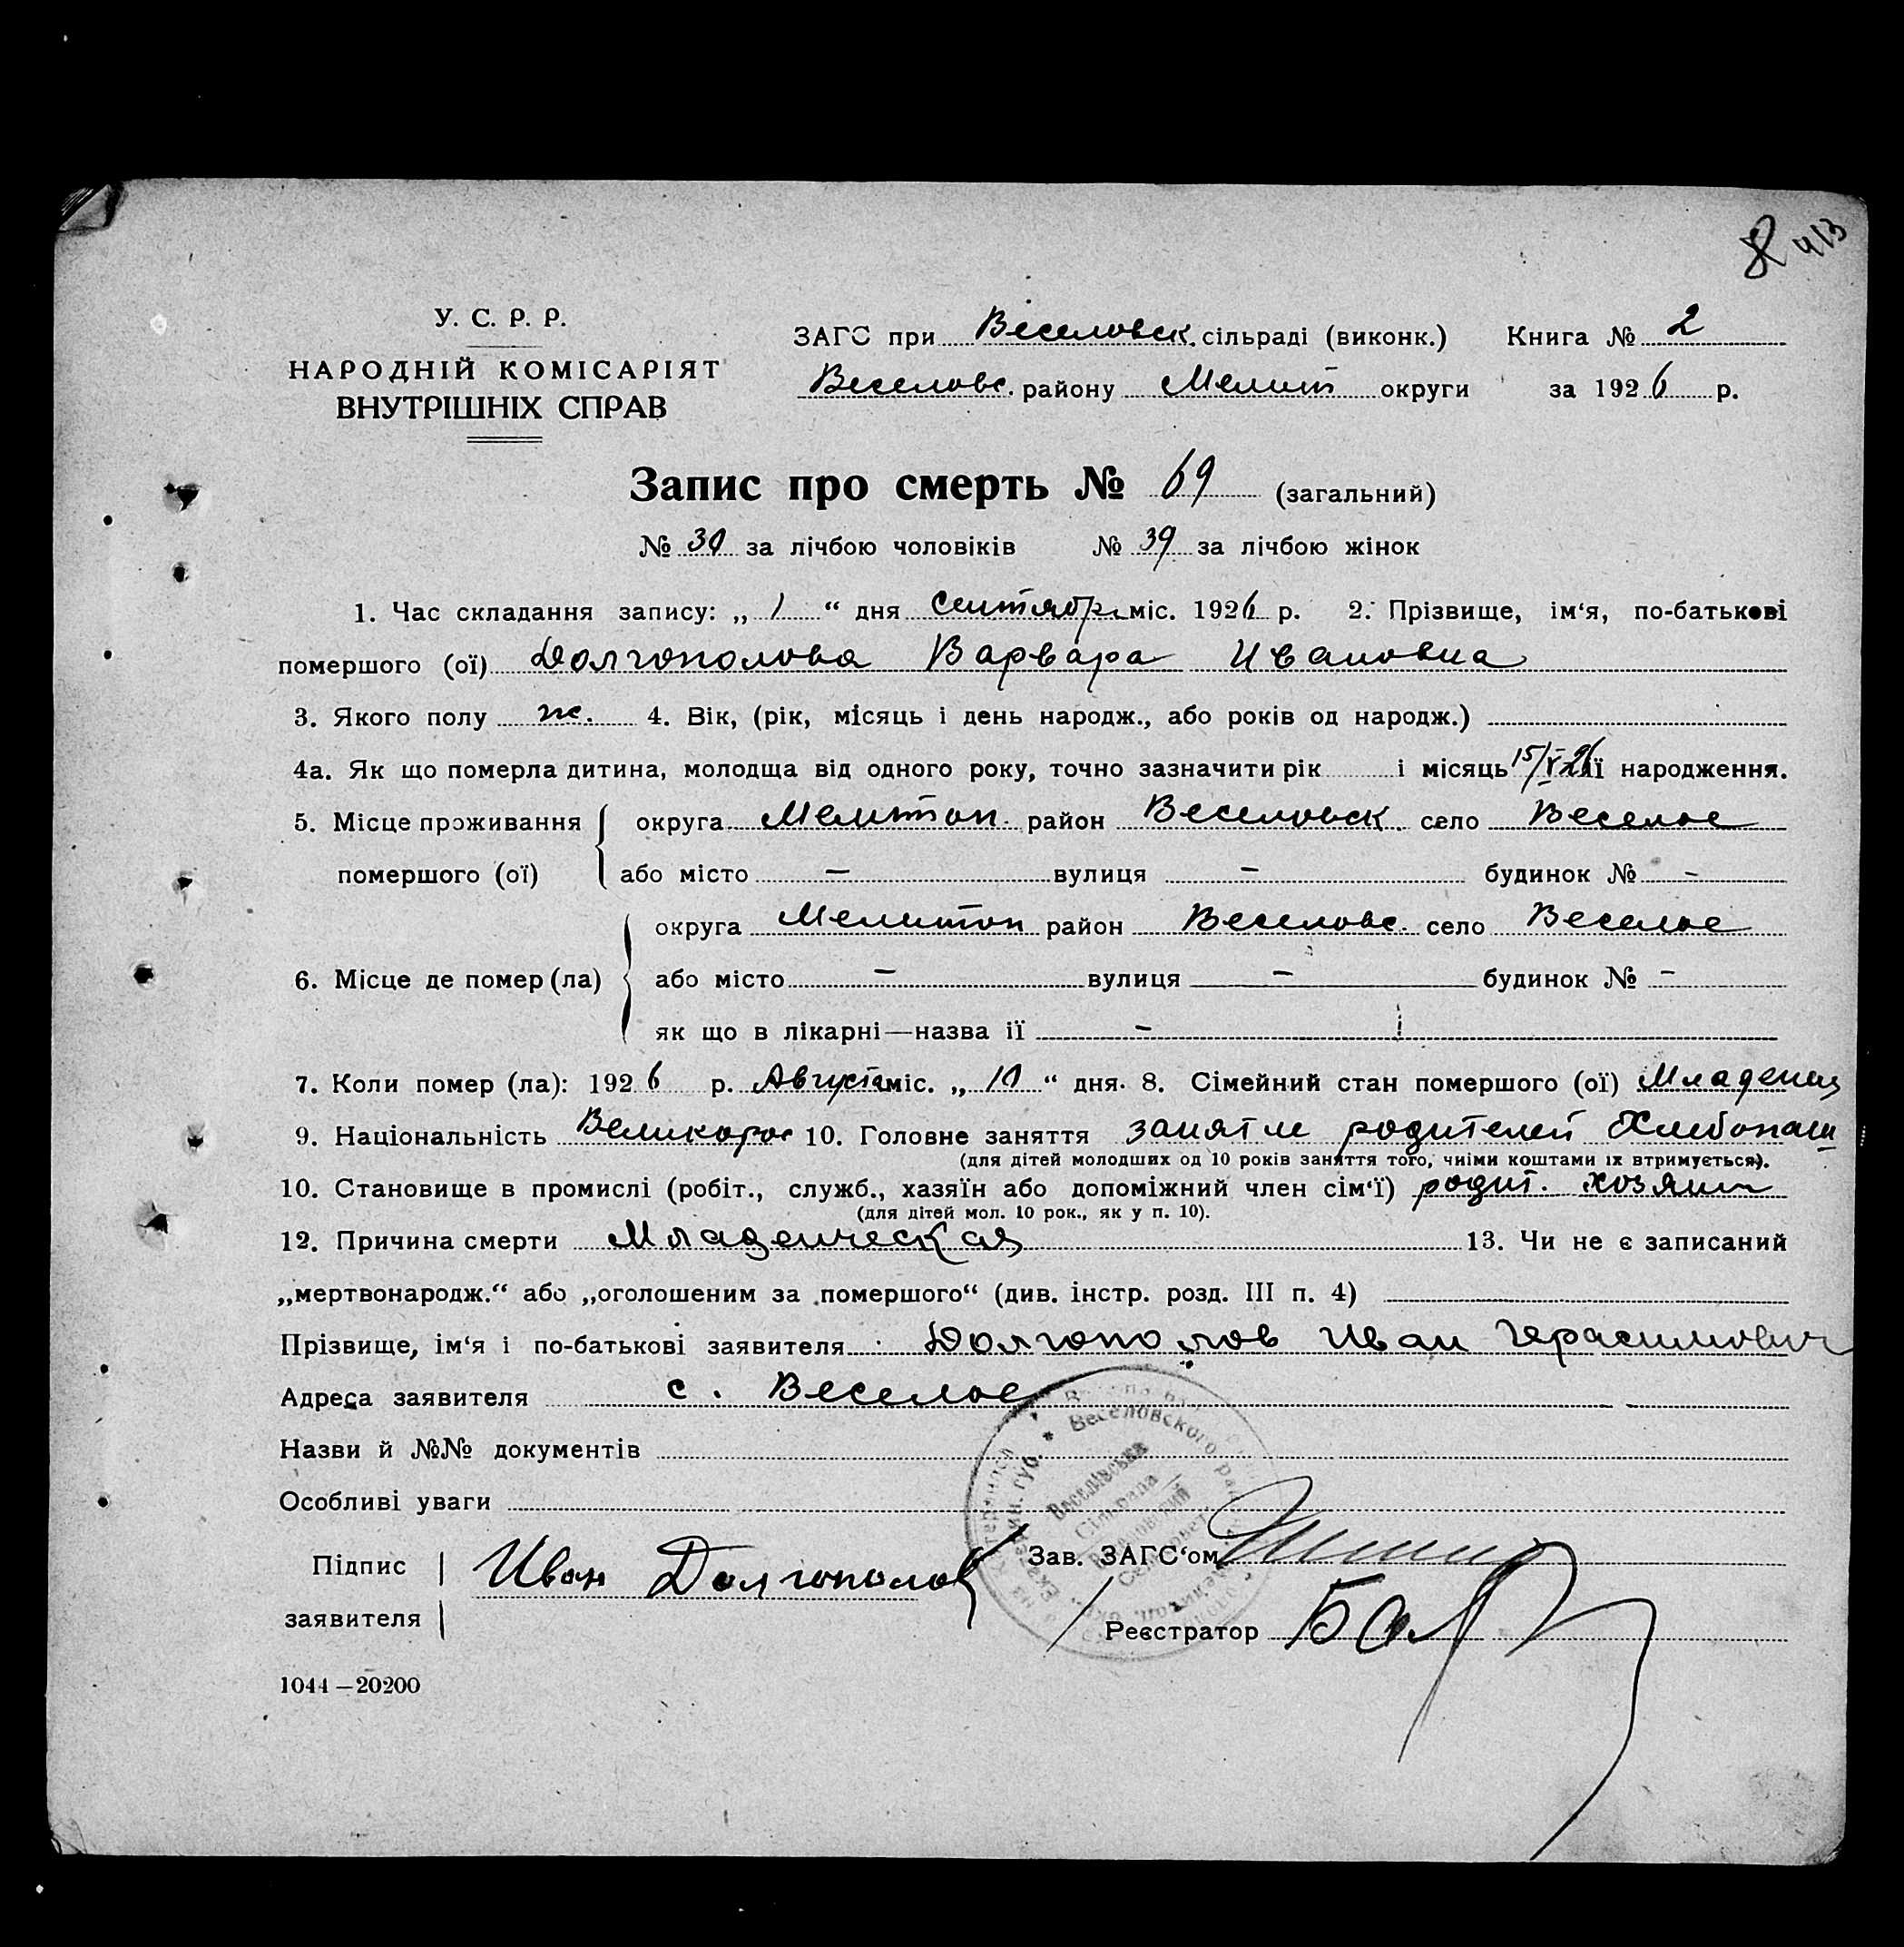 413
У. С. Р. Р.
НАРОДНІЙ КОМІСАРІЯТ
ВНУТРІШНІХ СПРАВ
ЗАГС при Веселовск. сільраді (виконк.) Книга № 2
Веселовс. району Мелит округи за 1926 р.
Запис про смерть № 69 (загальний)
№ 30 за лічбою чоловіків № 39 за лічбою жінок
1. Час складання запису: „ 1 “ дня Сентябр. міс. 1926 р. 2. Прізвище, ім‘я, по-батькові
помершого (ої) Долгополова Варвара Ивановна
3. Якого полу ж. 4. Вік, (рік, місяць і день народж., або років од народж.)
4а. Як що померла дитина, молодща від одного року, точно зазначити рік і місяць її народження.
5. Місце проживання округа Мелитоп. район Веселовск. село Веселое
помершого (ої) або місто — вулиця — будинок № -
округа Мелитоп район Веселовс. село Веселое
6. Місце де помер (ла) або місто — вулиця — будинок № -
як що в лікарні—назва її -
7. Коли помер (ла): 1926 р. Августа міс. „ 10 “ дня. 8. Сімейний стан помершого (ої) Младенец
9. Національність Великорос 10. Головне заняття занятие родителей Хлебопаш
(для дітей молодших од 10 років заняття того, чиїми коштами їх втримується).
10. Становище в промислі (робіт., служб., хазяїн або допоміжний член сім‘ї) родит. хозяин
(для дітей мол. 10 рок., як у п. 10).
12. Причина смерти Младенческая 13. Чи не є записаний
„мертвонародж.“ або „оголошеним за помершого“ (див. інстр. розд. III п. 4)
Прізвище, ім‘я і по-батькові заявителя Долгополов Иван Герасимович
Адреса заявителя с. Веселое
Назви й №№ документів
Особливі уваги
Веселовского
Веселівська
Сільрада
Підпис Иван Долгополов Зав. ЗАГС‘ом
заявителя Реєстратор
1044—20200